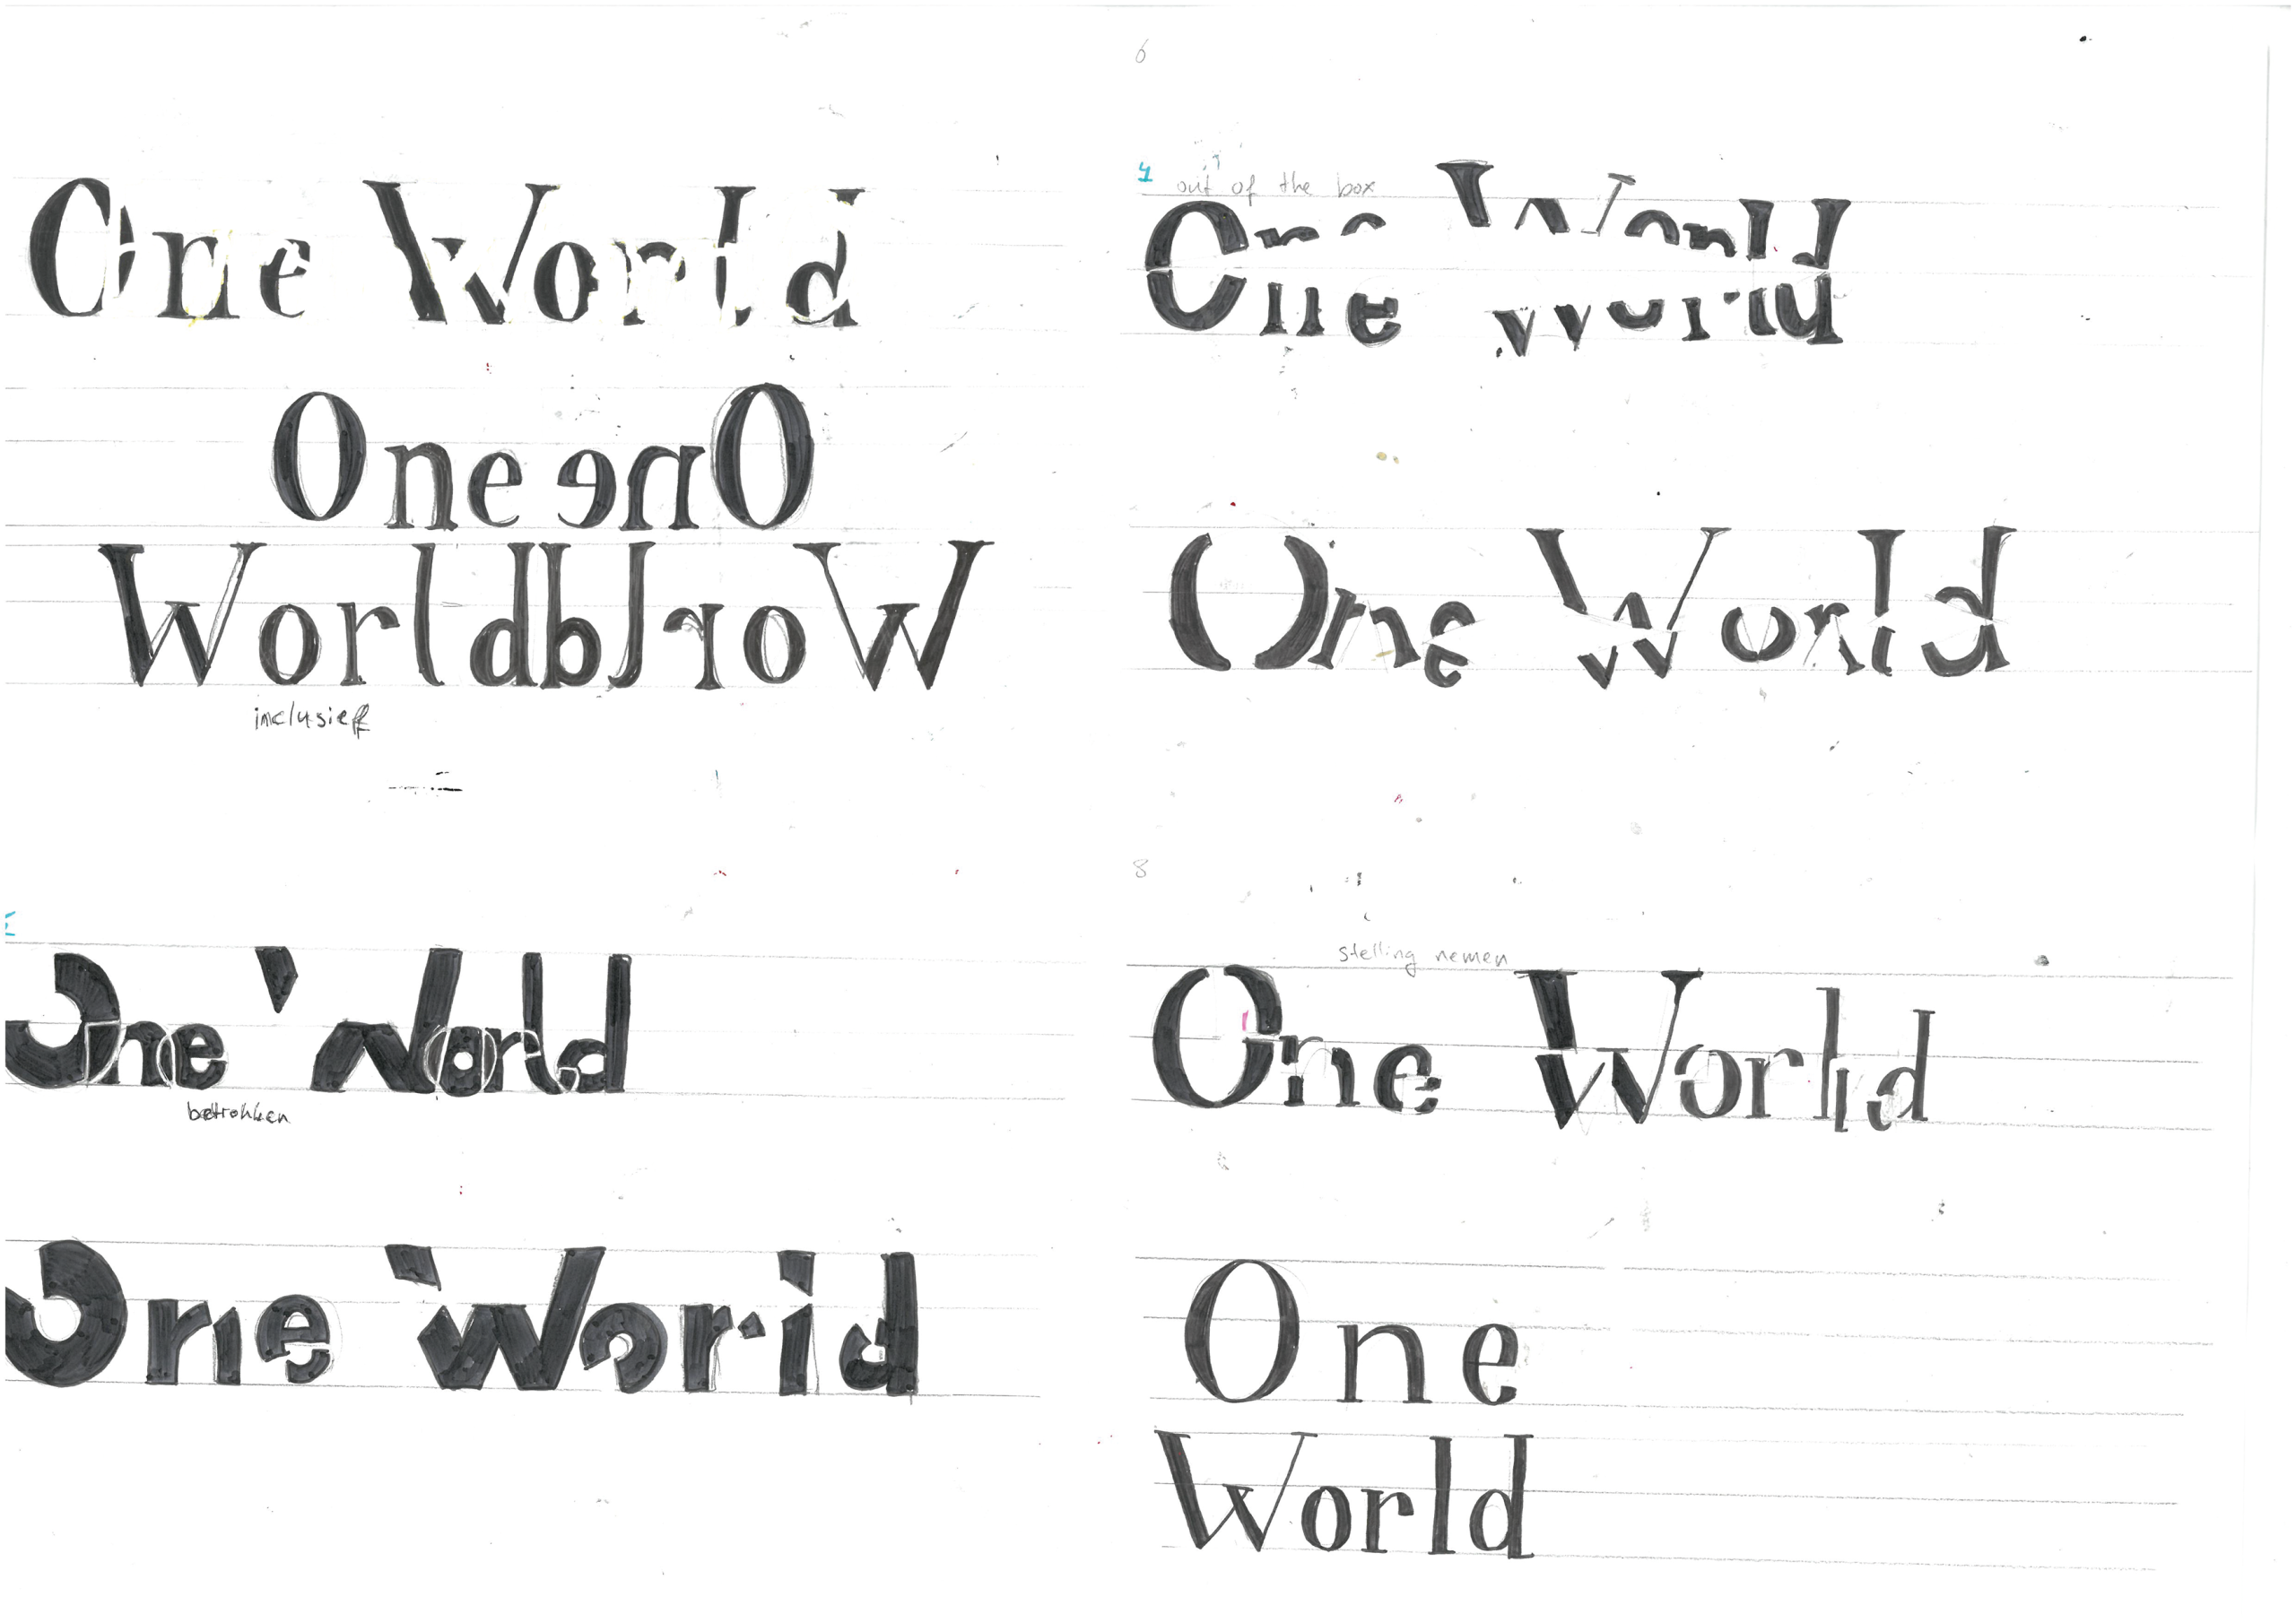 One World
One enO
WorldblroW
inclusieff
6
4 out of the box
One World
One World
One World
betrokken
One World
8
stelling nemen
One World
One
World